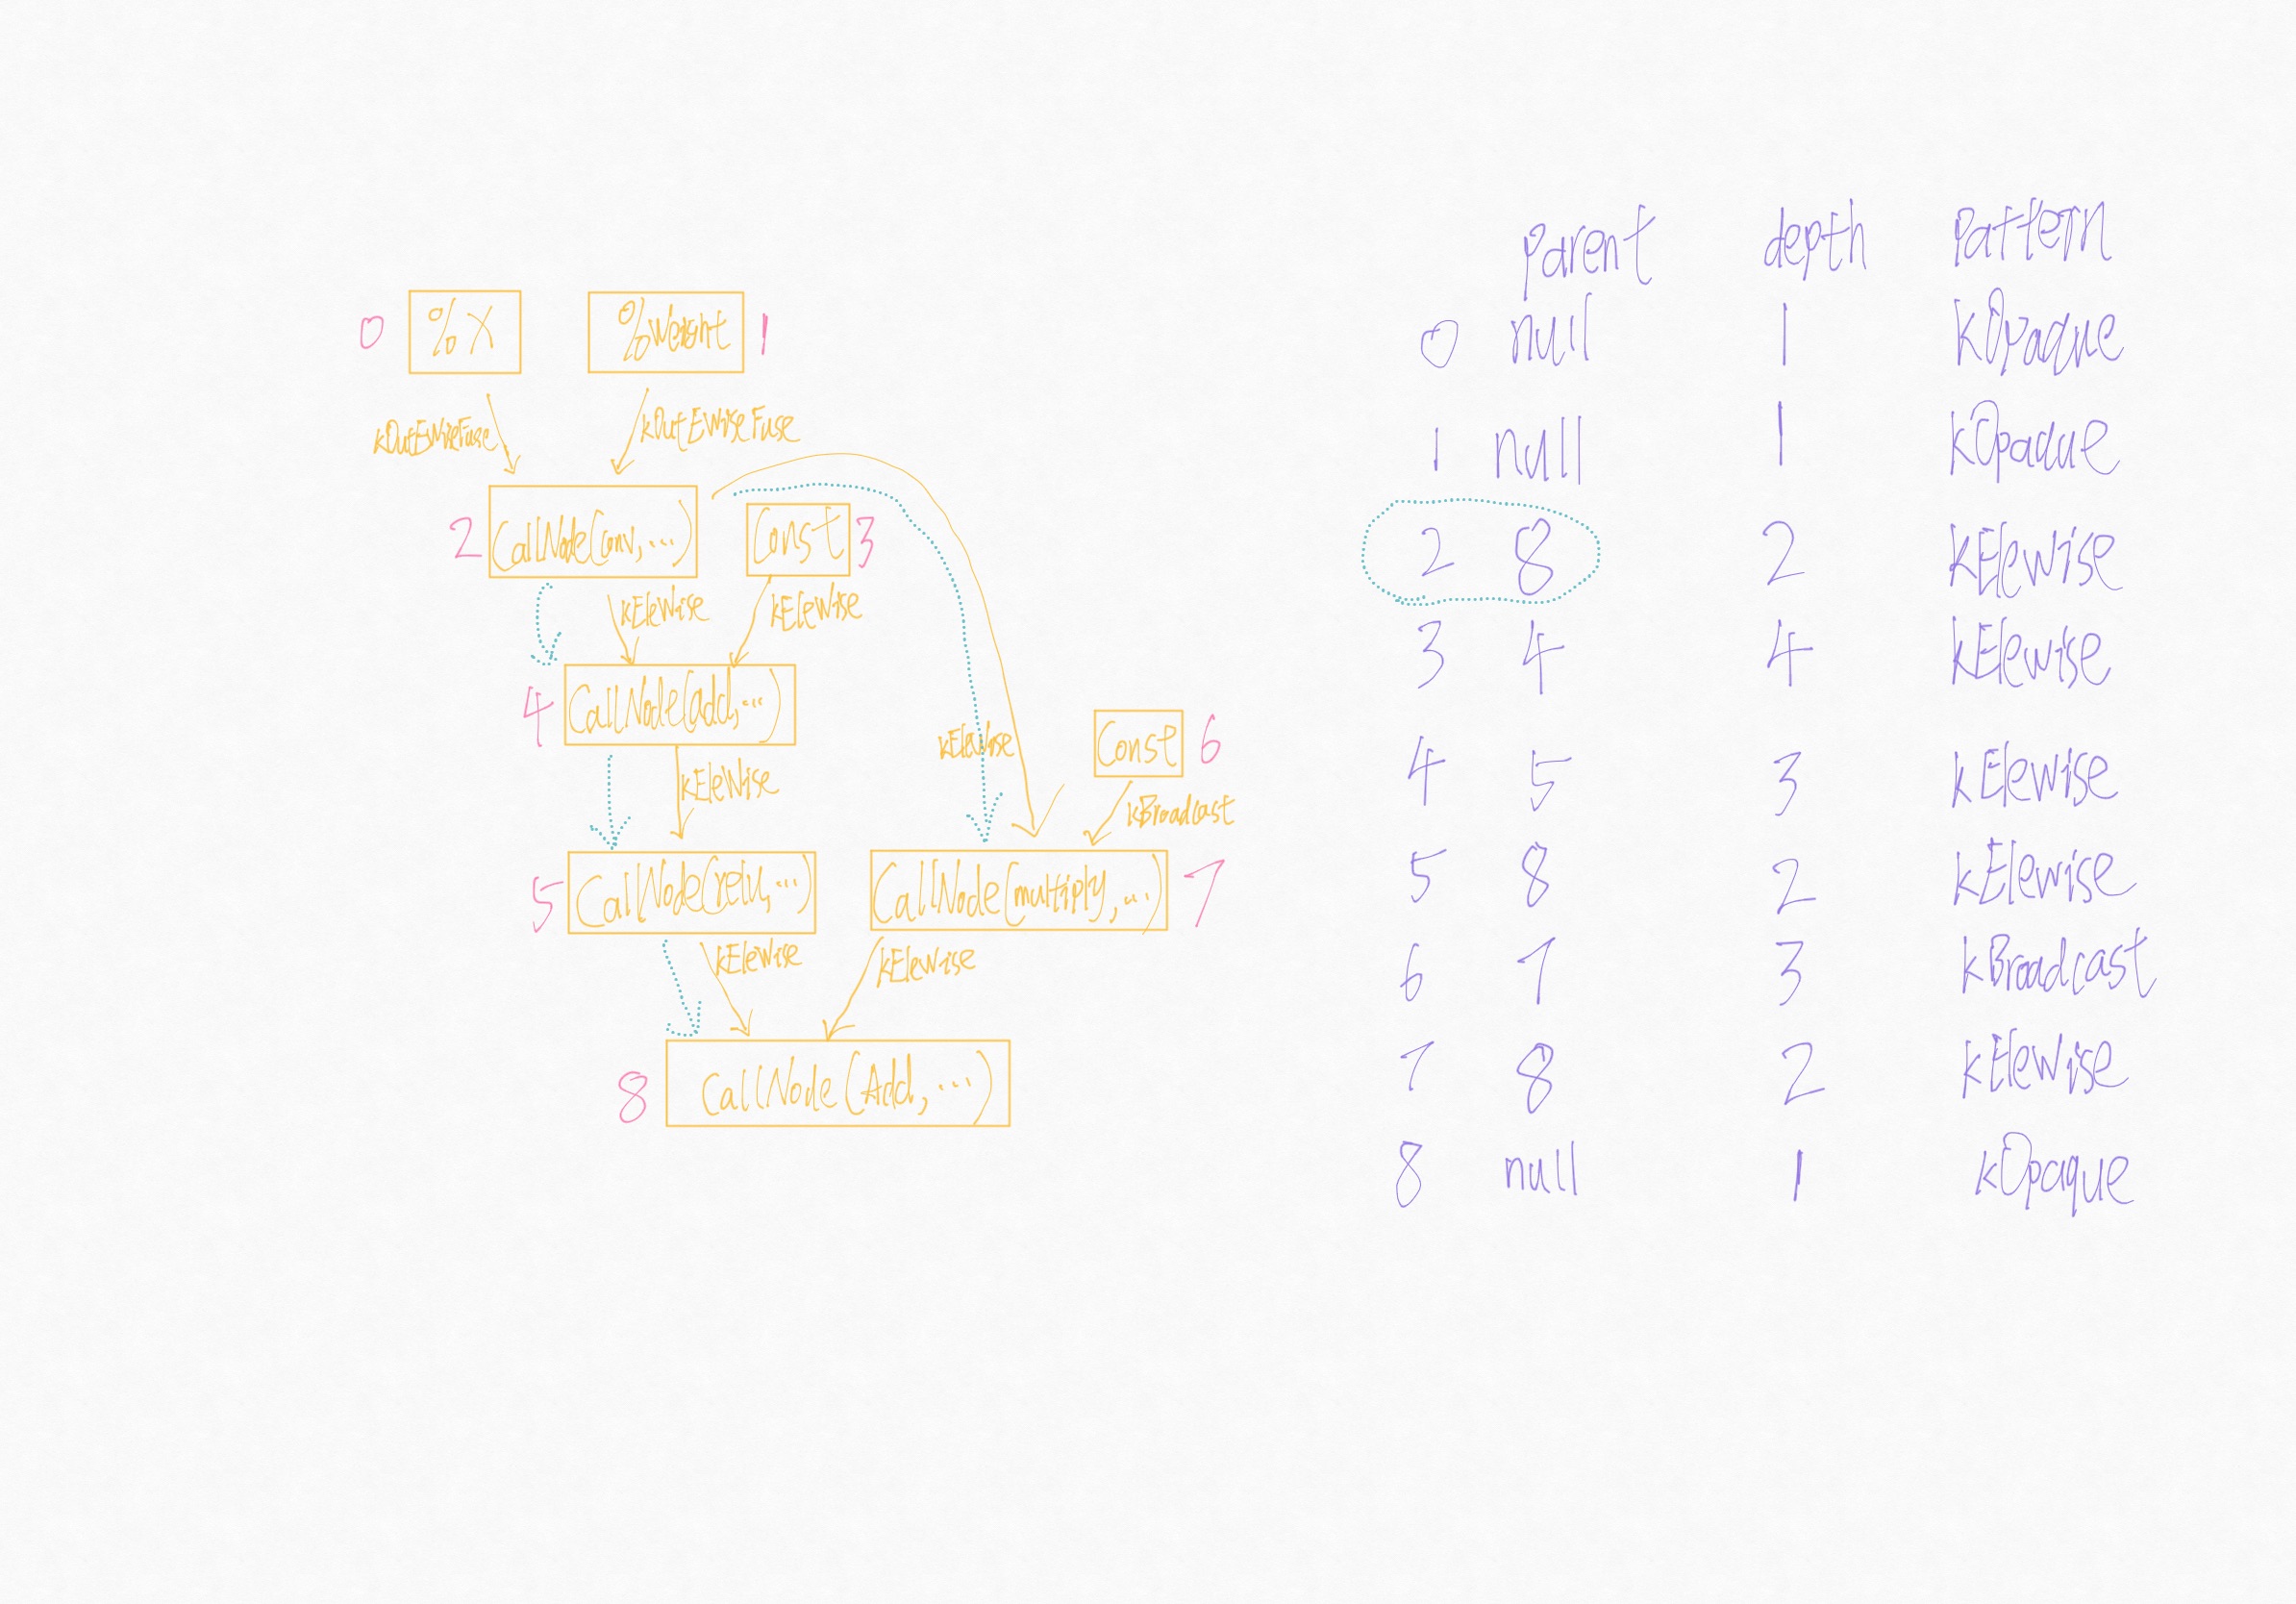 0 %X %Weight 1
kOutEWiseFuse kOutEWiseFuse
2 CallNode(conv,...) Const 3
kEleWise kEleWise
4 CallNode(add,...)
kEleWise
kEleWise
Const 6
kBroadcast
5 CallNode(relu,...) CallNode(multiply,...) 7
kEleWise kEleWise
8 CallNode(Add,...)
parent depth Pattern
0 null 1 kOpaque
1 null 1 kOpaque
2 8 2 kElewise
3 4 4 kElewise
4 5 3 kElewise
5 8 2 kElewise
6 7 3 kBroadcast
7 8 2 kEleWise
8 null 1 kOpaque